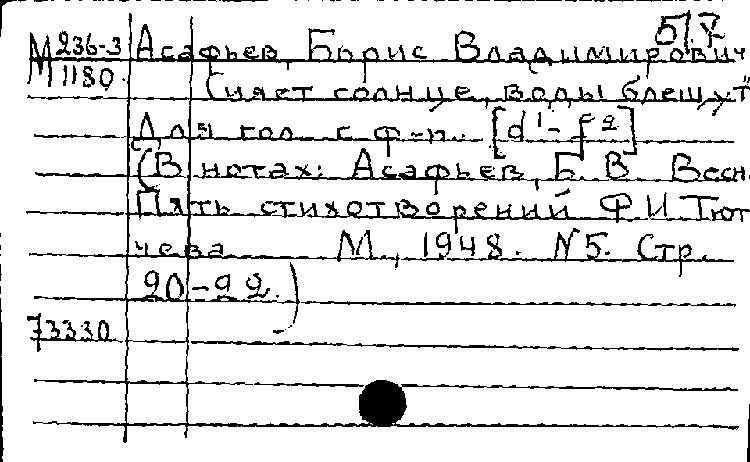 517
М 236-3 Асафьев, Борис Владимирович
М 1180. Сияет солнце, воды блещут
Для гол. с ф-п. [d¹-f²]
(В нотах: Асафьев, Б. В. Весн.
Пять стихотворений Ф. И. Тют
чева М., 1948. N5. Стр.
20-22.)
73330